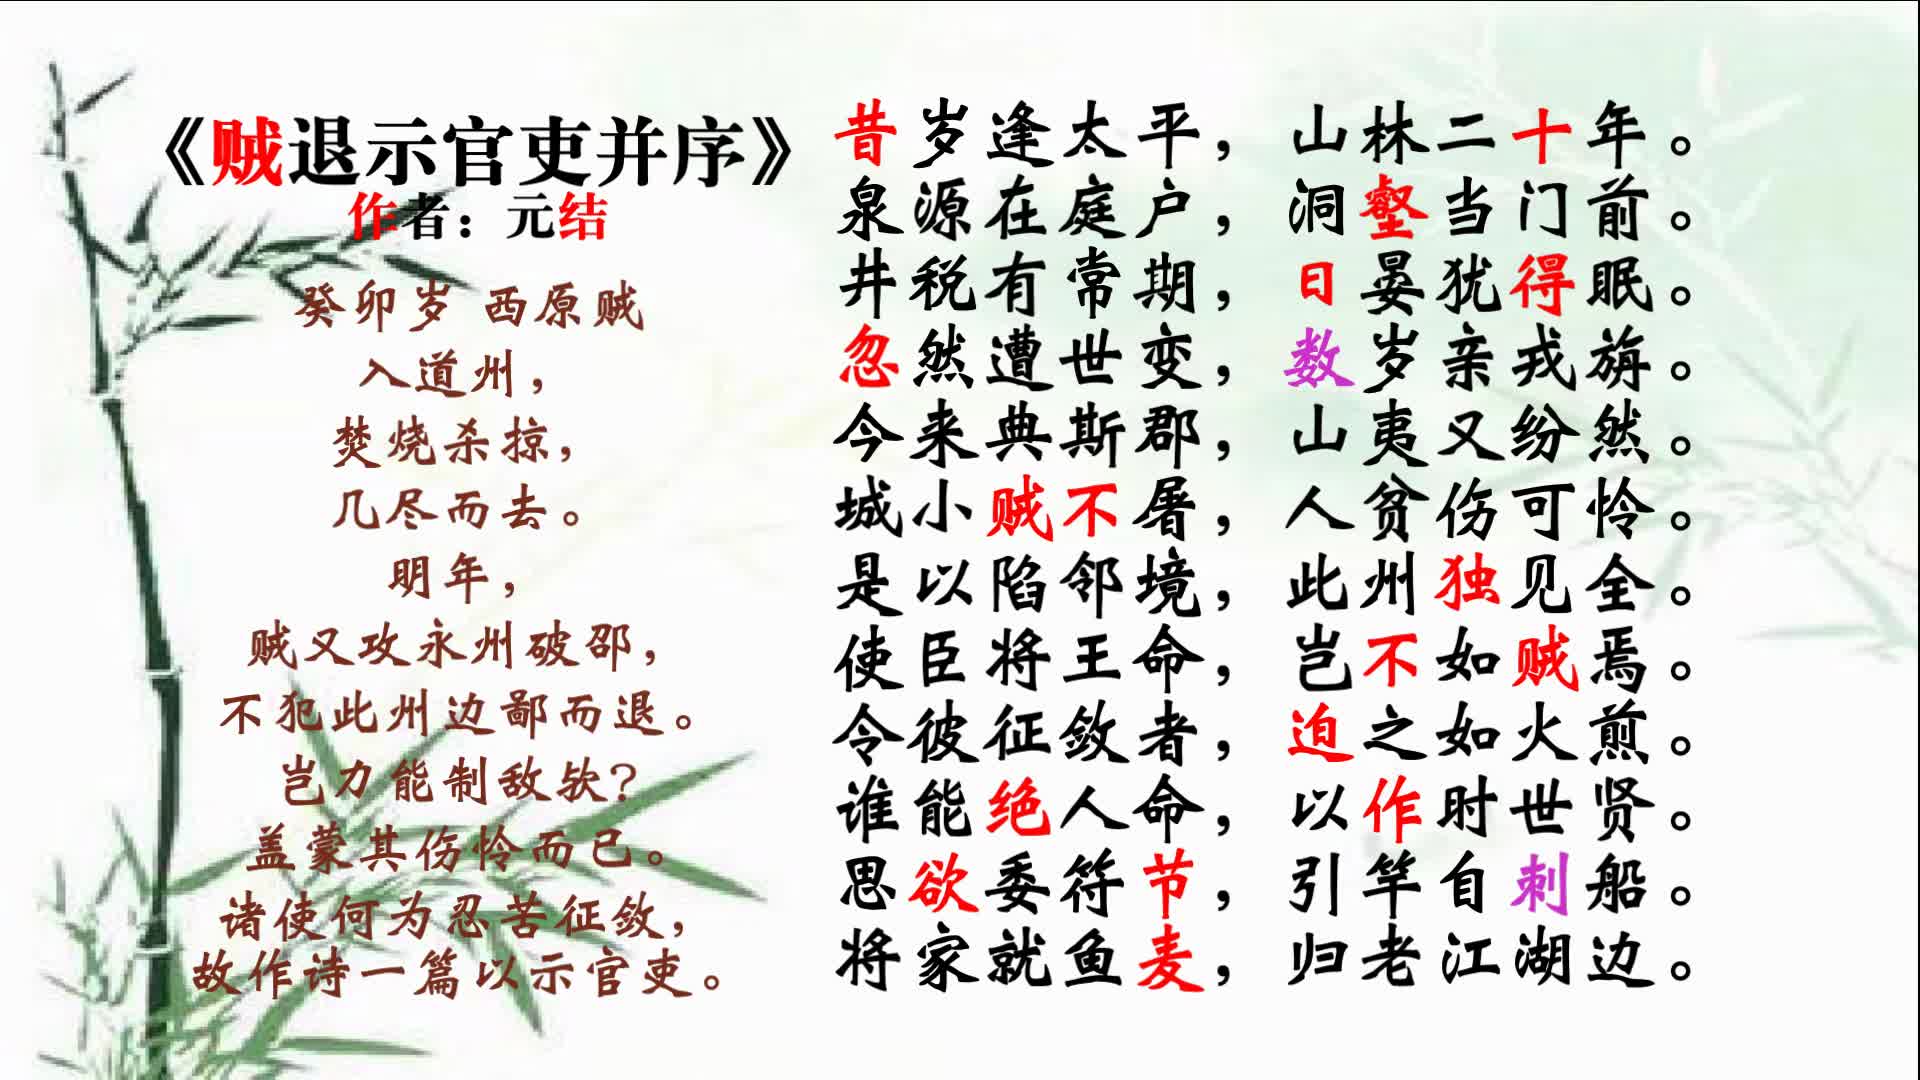 《贼退示官吏并序》
作者：元结
癸卯岁 西原贼
入道州，
焚烧杀掠，
几尽而去。
明年，
贼又攻永州破邵，
不犯此州边鄙而退。
岂力能制敌欤？
盖蒙其伤怜而已。
诸使何为忍苦征敛，
故作诗一篇以示官吏。
昔岁逢太平，山林二十年。
泉源在庭户，洞壑当门前。
井税有常期，日晏犹得眠。
忽然遭世变，数岁亲戎旃。
今来典斯郡，山夷又纷然。
城小贼不屠，人贫伤可怜。
是以陷邻境，此州独见全。
使臣将王命，岂不如贼焉。
令彼征敛者，迫之如火煎。
谁能绝人命，以作时世贤。
思欲委符节，引竿自刺船。
将家就鱼麦，归老江湖边。